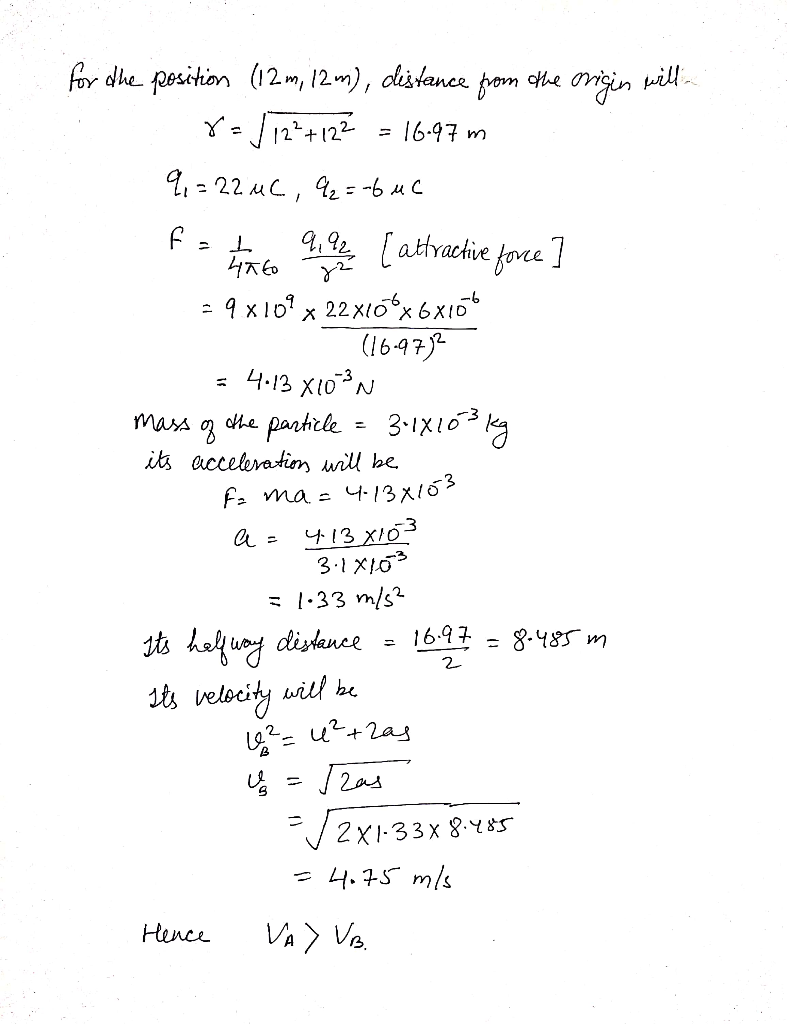 for the position (12m, 12m), distance from the origin will
r = √12²+12² = 16.97 m
q₁ = 22 μC, q₂ = -6 μC
F = 1/4πε₀ q₁q₂/r² [attractive force]
= 9 × 10⁹ × 22×10⁻⁶×6×10⁻⁶/(16.97)²
= 4.13 ×10⁻³ N
Mass of the particle = 3.1×10⁻³ kg
its acceleration will be
F = ma = 4.13×10⁻³
a = 4.13 ×10⁻³/3.1 ×10⁻³
= 1.33 m/s²
Its halfway distance = 16.97/2 = 8.485 m
Its velocity will be
v_B² = u²+2as
v_B = √2as
= √2×1.33×8.485
= 4.75 m/s
Hence V_A > V_B.